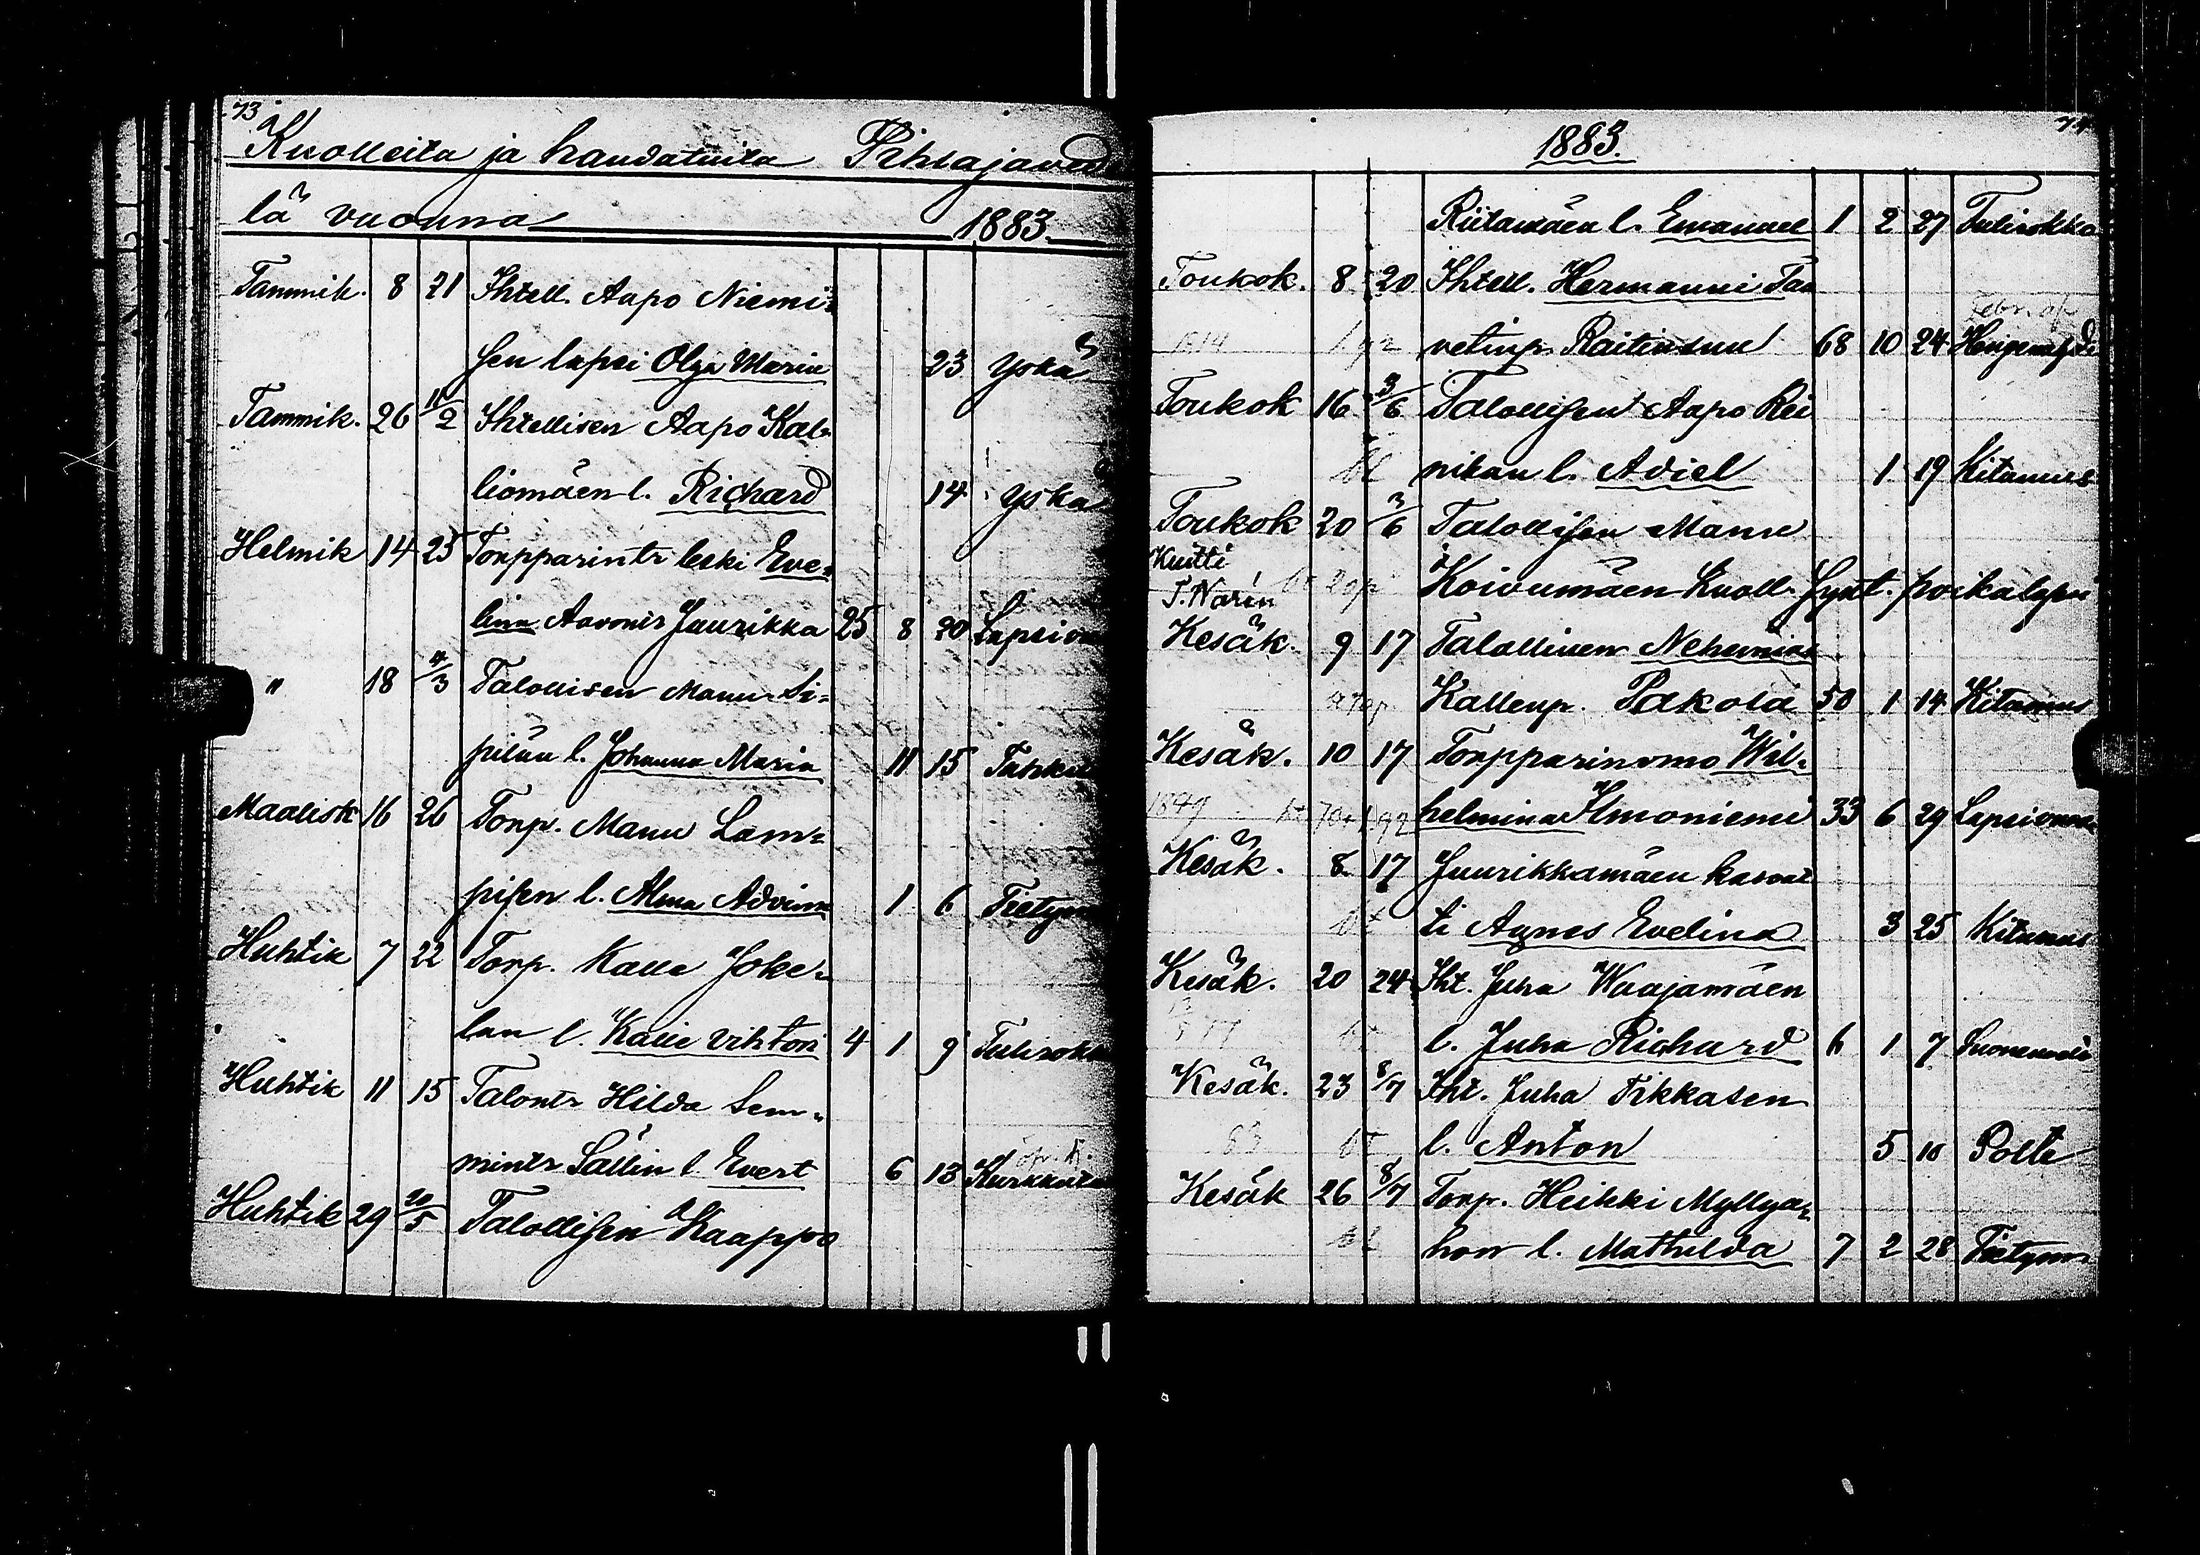 73
Kuolleita ja haudatuita Pihlajaved
lä vuonna 1883.
Tammik. 8 21 Ihtell. Aapo Niemi-
sen lapsi Olga Maria 23 Yskä
Tammik. 26 11/2 Ihtellisen Aapo Kal-
liomäen l. Richard 14 Yskä
Helmik 14 25 Torpparintr leski Eve-
lina Aavontr Juurikka 25 8 20 Lapsivu
" 18 4/3 Talollisen Manu Si-
pilän l. Johanna Maria 11 15 Tuhku
Maalisk 16 26 Torp. Manu Lam-
pisen l. Alma Advina 1 6 Tietym
Huhtik 7 22 Torp. Kalle Joke-
lan l. Kalle Vihtori 4 1 9 Tulirokk
Huhtik 11 15 Talontr Hilda Sem-
mintr Sällin l. Evert 6 13 Kurkkuta
Huhtik 29 20/5 Talollisen Kaappo
74
1883.
Riitamäen l. Emanuel 1 2 27 Tulirokko
Toukok. 8 20 Ihtell. Hermanni Taa
vetinp. Raitinsuu 68 10 24
Toukok 16 3/6 Talollisen Aapo Rei
nikan l. Adiel 1 19 Kitumus
Toukok 20 3/6 Talollisen Manu
Kustti
T. Norén
Koivumäen kuoll. synt. poikalapsi
Kesäk. 9 17 Talollinen Nehemias
Kallenp. Pakola 50 1 14 Kitumus
Kesäk. 10 17 Torpparinvmo Wil-
1849 helmina Ilmoniemi 33 6 29 Lapsivuode
Kesäk. 8 17 Juurikkamäen kasvat
ti Agnes Evelina 3 25 Kitumus
Kesäk. 20 24 Iht. Juha Waajamäen
l. Juha Richard 6 1 7
Kesäk. 23 8/7 Iht. Juha Tikkasen
83 l. Anton 5 10 Polte
Kesäk 26 8/7 Torp. Heikki Myllya-
hon l. Mathilda 7 2 28 Tietym